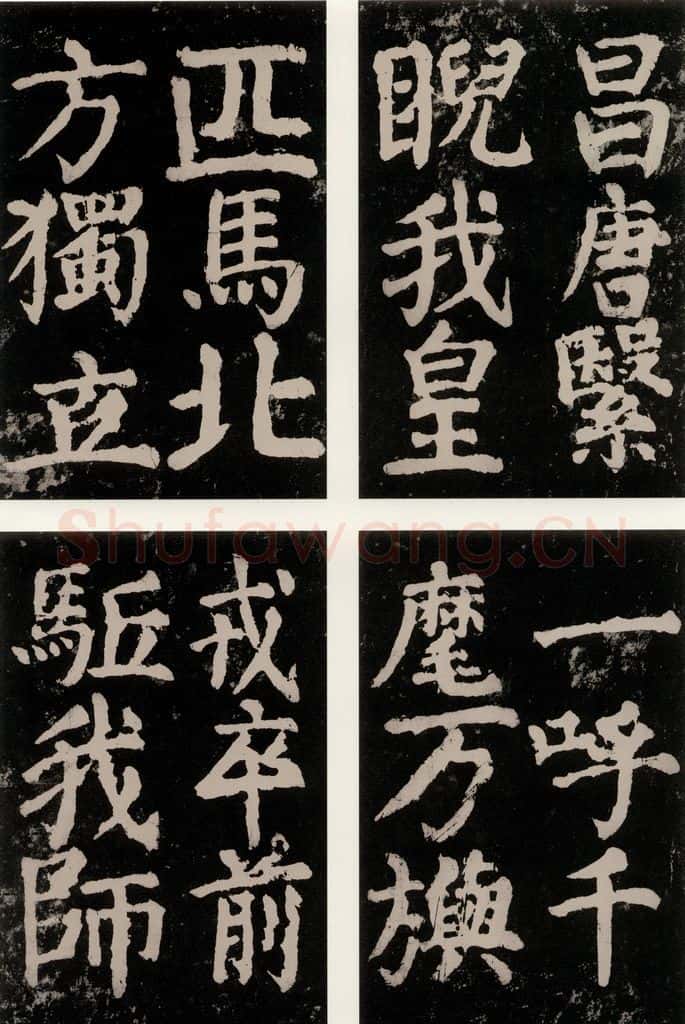 昌唐繄
睨我皇
匹馬北
方獨立
一呼千
麾万旟
戎卒前
駈我師
Shufawang.CN